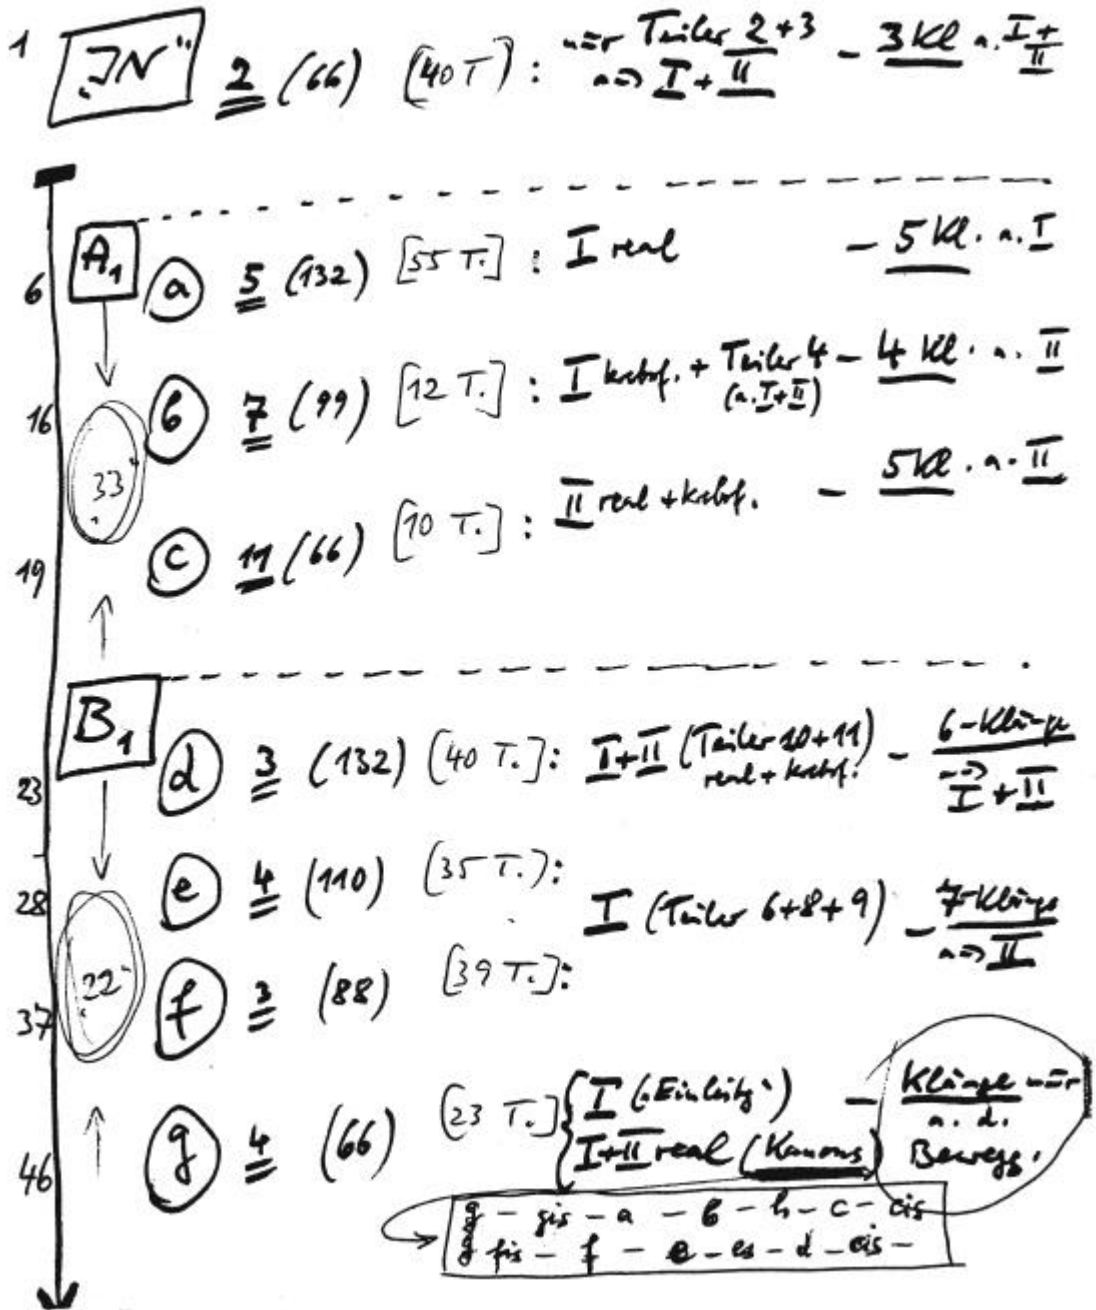 1 „IN“ 2 (66) (40 T) : nur Teiler 2+3 – 3 Kl a. I +
a ⇒ I + II II
A1
6 a 5 (132) [55 T.] : I real – 5 Kl. a. I
16 b 7 (99) [12 T.] : I krebsf. + Teiler 4 – 4 Kl. a. II
(a. I+II)
„33“
19 c 11 (66) [10 T.] : II real + krebsf. – 5 Kl. a. II
B1
23 d 3 (132) (40 T.] : I+II (Teiler 10+11) – 6-Klänge
real + krebsf. I + II
28 e 4 (110) (35 T.) :
I (Teiler 6+8+9) – 7-Klänge
a ⇒ II
„22“
37 f 3 (88) [39 T.] :
46 g 4 (66) (23 T.] { I („Einleitg“) – Klänge nur
I+II real (Kanons) a. d.
Bewegg.
g – gis – a – b – h – c – cis
g fis – f – e – es – d – cis –